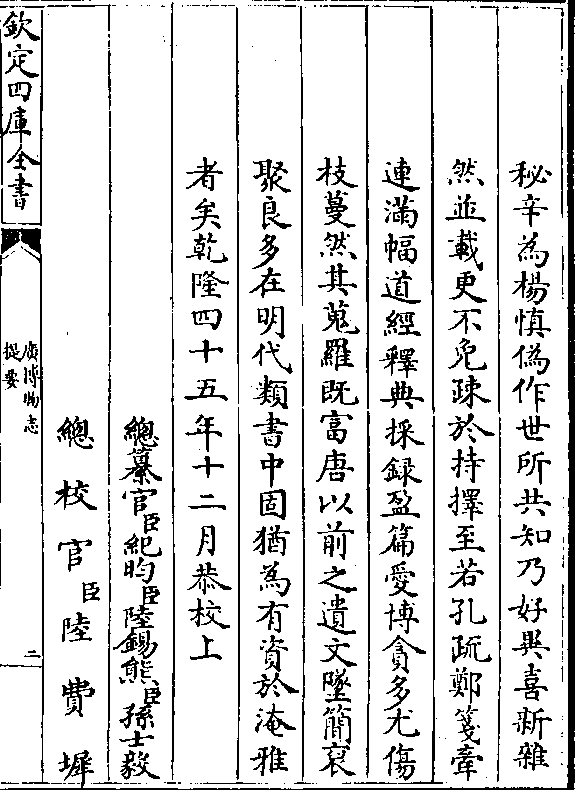 秘辛為楊慎偽作世所共知乃好異喜新雜
然並載更不免疎於持擇至若孔疏鄭箋牽
連滿幅道經釋典採録盈篇愛博貪多尤傷
枝蔓然其蒐羅既富唐以前之遺文墜簡裒
聚良多在明代類書中固猶為有資於淹雅
者矣乾隆四十五年十二月恭校上
總纂官臣紀昀臣陸錫熊臣孫士毅
總校官臣陸費墀
欽定四庫全書
廣博物志
提要
二